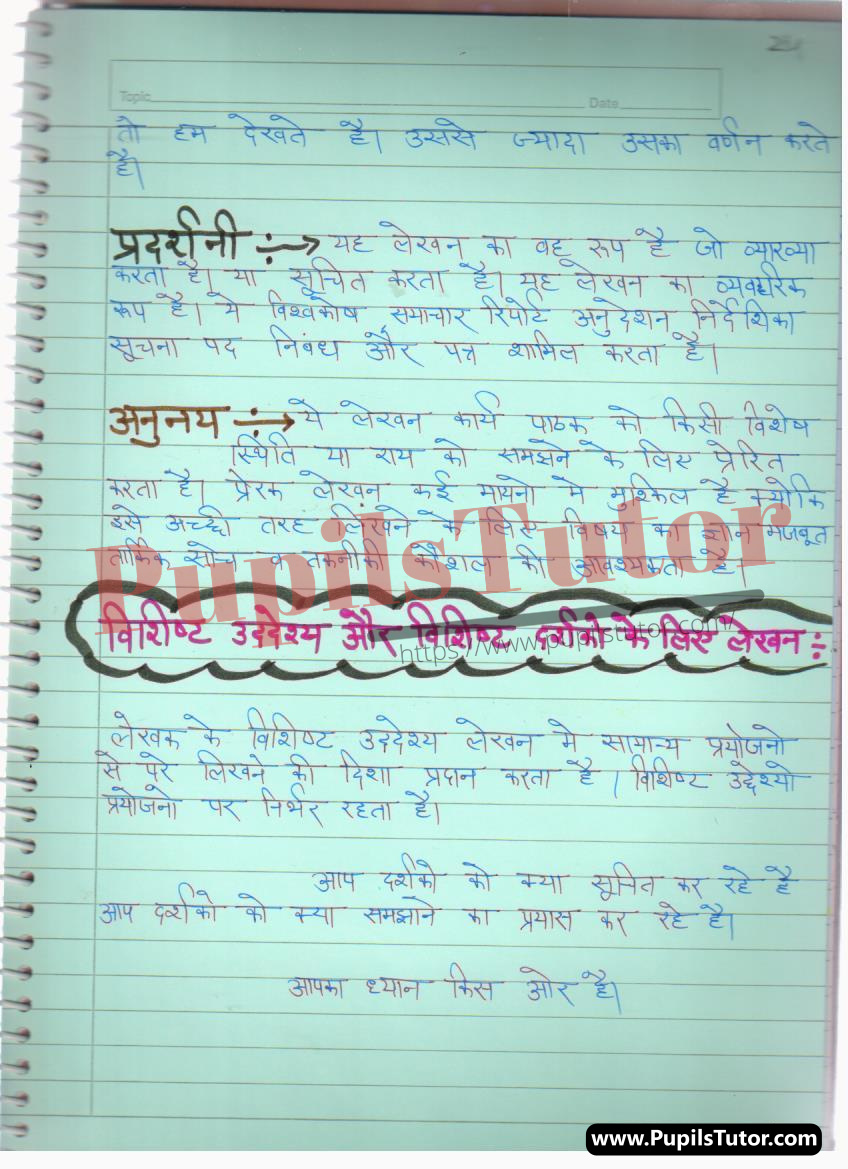 Topic Date
तो हम देखते है। उससे ज्यादा उसका वर्णन करते
है।
प्रदर्शनी ÷→ यह लेखन का वह रूप है जो व्याख्या
करता है। या सूचित करता है। यह लेखन का व्यवहरिक
रूप है। ये विश्वकोष समाचार रिपोर्ट अनुदेशन निर्देशिका
सूचना पद निबंध और पत्र शामिल करता है।
अनुनय ÷→ ये लेखन कार्य पाठक को किसी विशेष
स्थिति या राय को समझने के लिए प्रेरित
करता है। प्रेरक लेखन कई मायनो मे मुश्किल है क्योकि
इसे अच्छी तरह लिखने के लिए विषय का ज्ञान मजबूत
तार्किक सोच व तकनीकी कौशल की आवश्यकता है।
PupilsTutor
विशिष्ट उददेश्य और विशिष्ट दर्शको के लिए लेखन ÷
https://www.pupilstutor.com/
लेखक के विशिष्ट उददेश्य लेखन मे सामान्य प्रयोजनो
से परे लिखने की दिशा प्रदान करता है। विशिष्ट उद्देश्यो
प्रयोजनो पर निर्भर रहता है।
आप दर्शको को क्या सूचित कर रहे है
आप दर्शको को क्या समझाने का प्रयास कर रहे है।
आपका ध्यान किस ओर है।
www.PupilsTutor.com